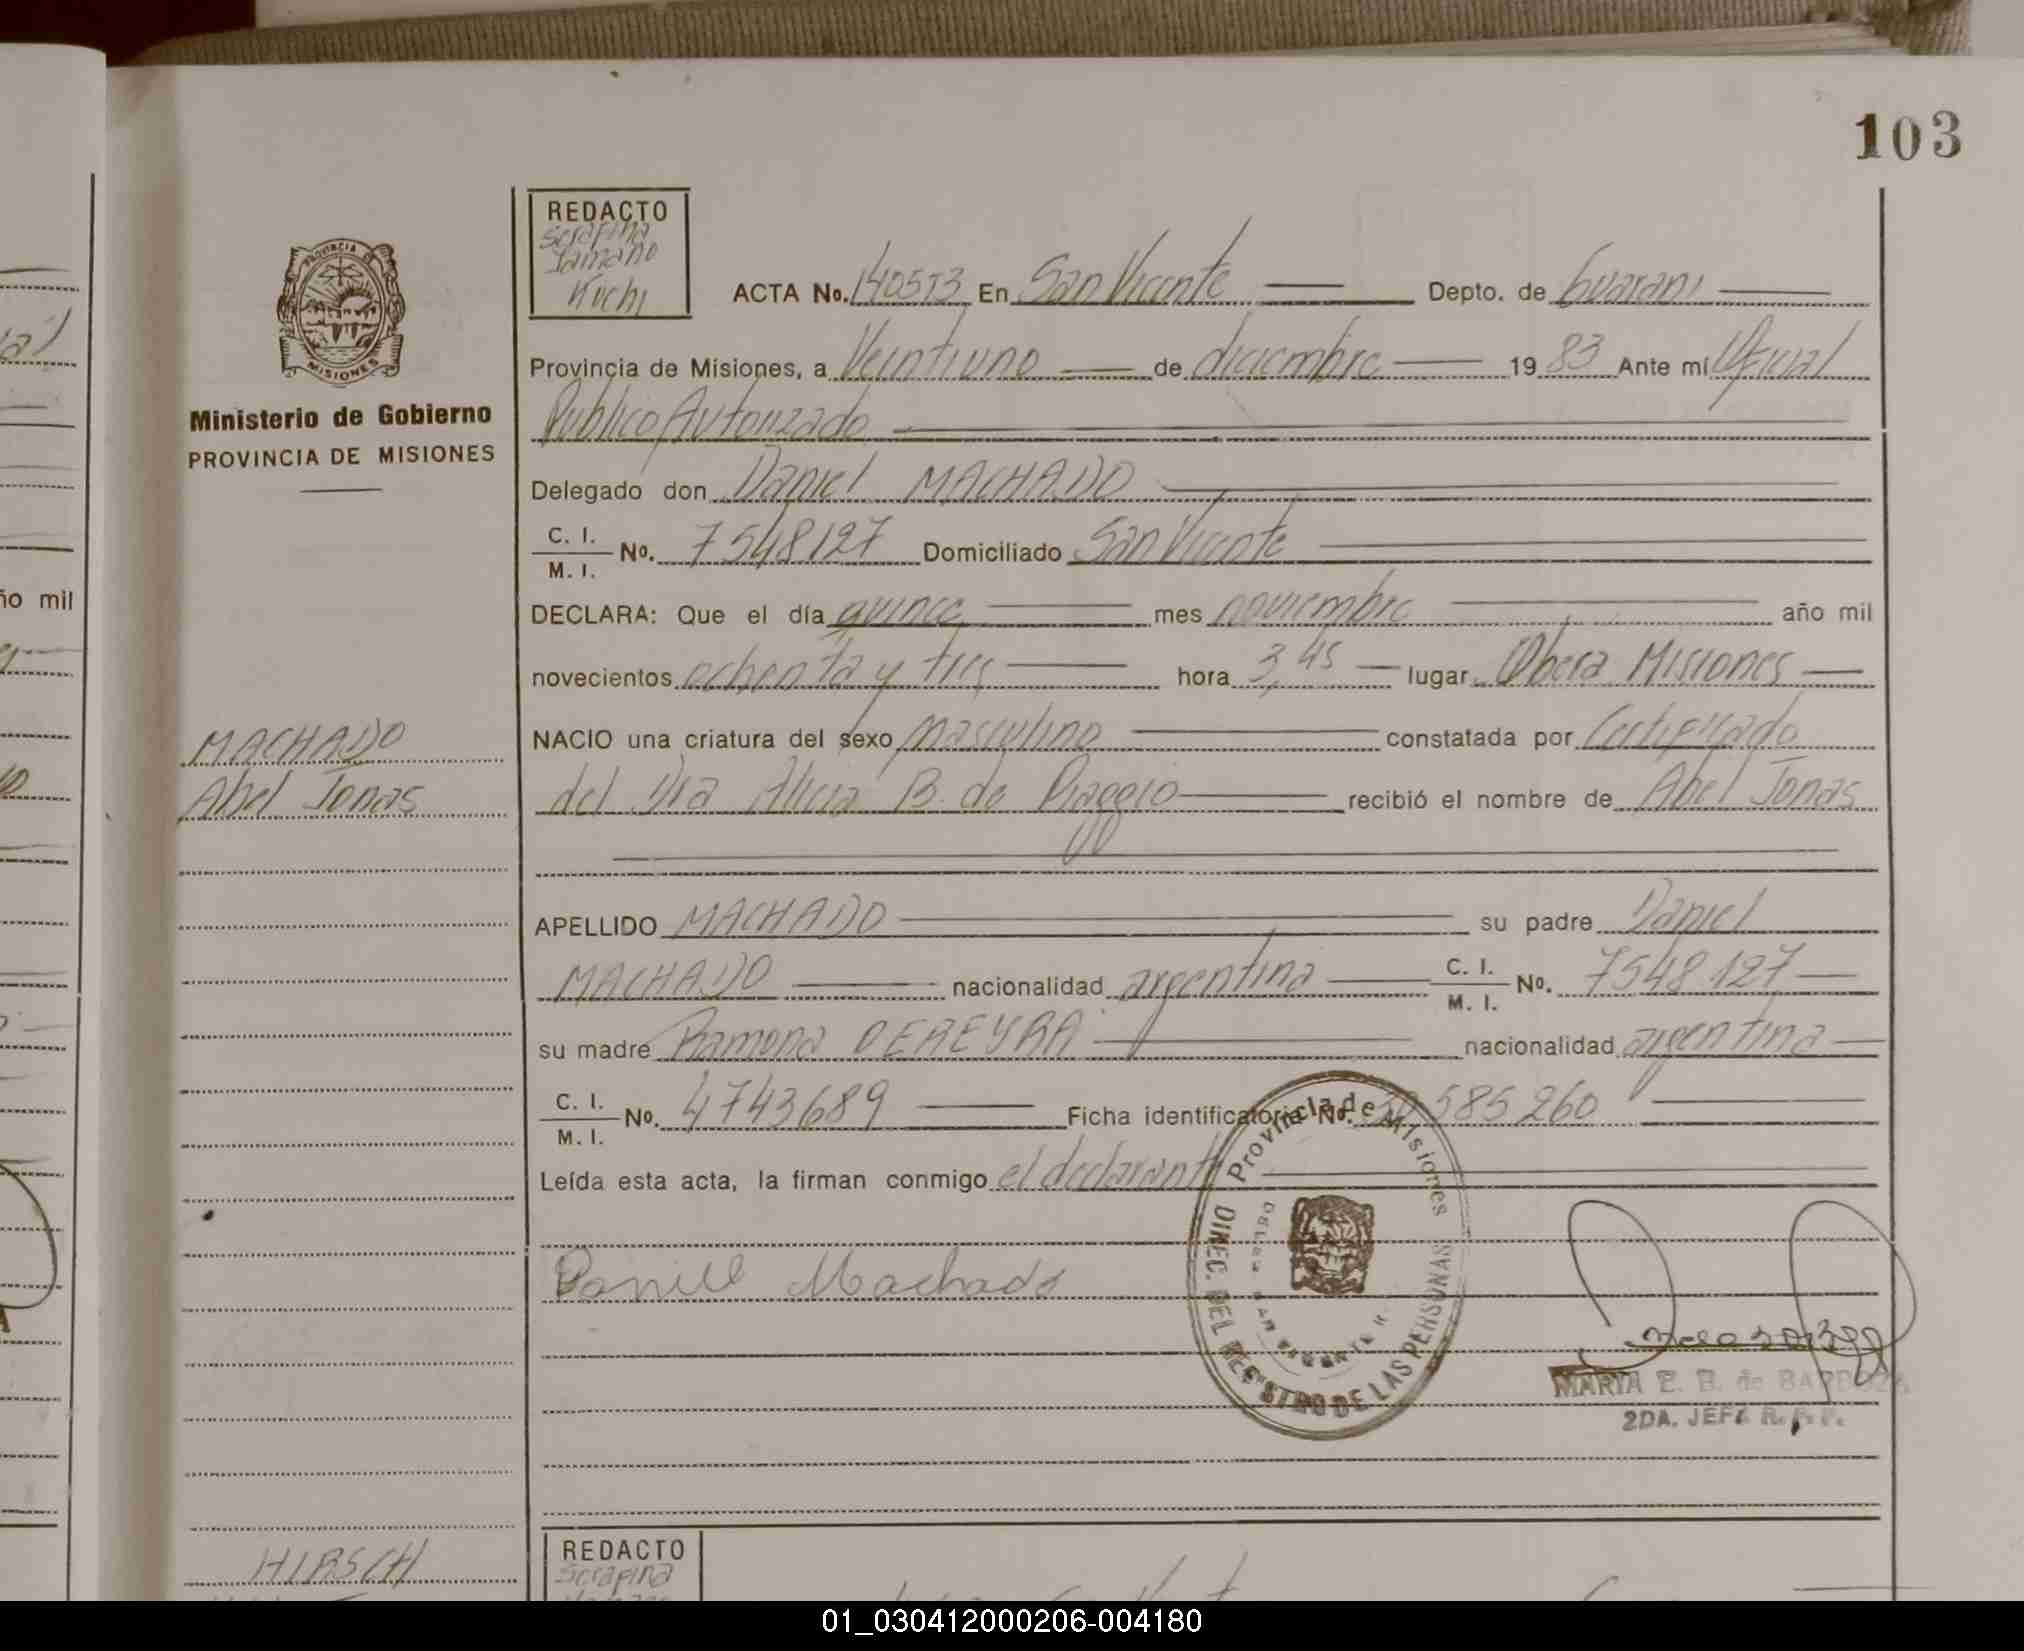 103
REDACTO
Serafina
Tamaño
Kuchi
ACTA No. 140573 En San Vicente Depto. de Guarani
Provincia de Misiones, a Veintiuno de diciembre 19 83 Ante mí Oficial
Publico Autorizado
Delegado don Daniel MACHADO
C. I.
M. I. No. 7548127 Domiciliado San Vicente
DECLARA: Que el día quince mes noviembre año mil
novecientos ochenta y tres hora 3,45 lugar Obera Misiones
NACIO una criatura del sexo masculino constatada por Certificado
del Dra Alicia B. de Piaggio recibió el nombre de Abel Jonas
APELLIDO MACHADO su padre Daniel
MACHADO nacionalidad argentina C. I.
M. I. No. 7548127
su madre Ramona PEREYRA nacionalidad argentina
C. I.
M. I. No. 4743689 Ficha identificatoria No. 30585260
Leída esta acta, la firman conmigo el declarante
Daniel Machado
Provincia de Misiones
DIREC. DEL REGISTRO DE LAS PERSONAS
MARIA E. B. de BARBOZA
2DA. JEFA R. P. P.
PROVINCIA DE
MISIONES
Ministerio de Gobierno
PROVINCIA DE MISIONES
MACHADO
Abel Jonas
HIRSCH
REDACTO
Serafina
ño mil
01_030412000206-004180